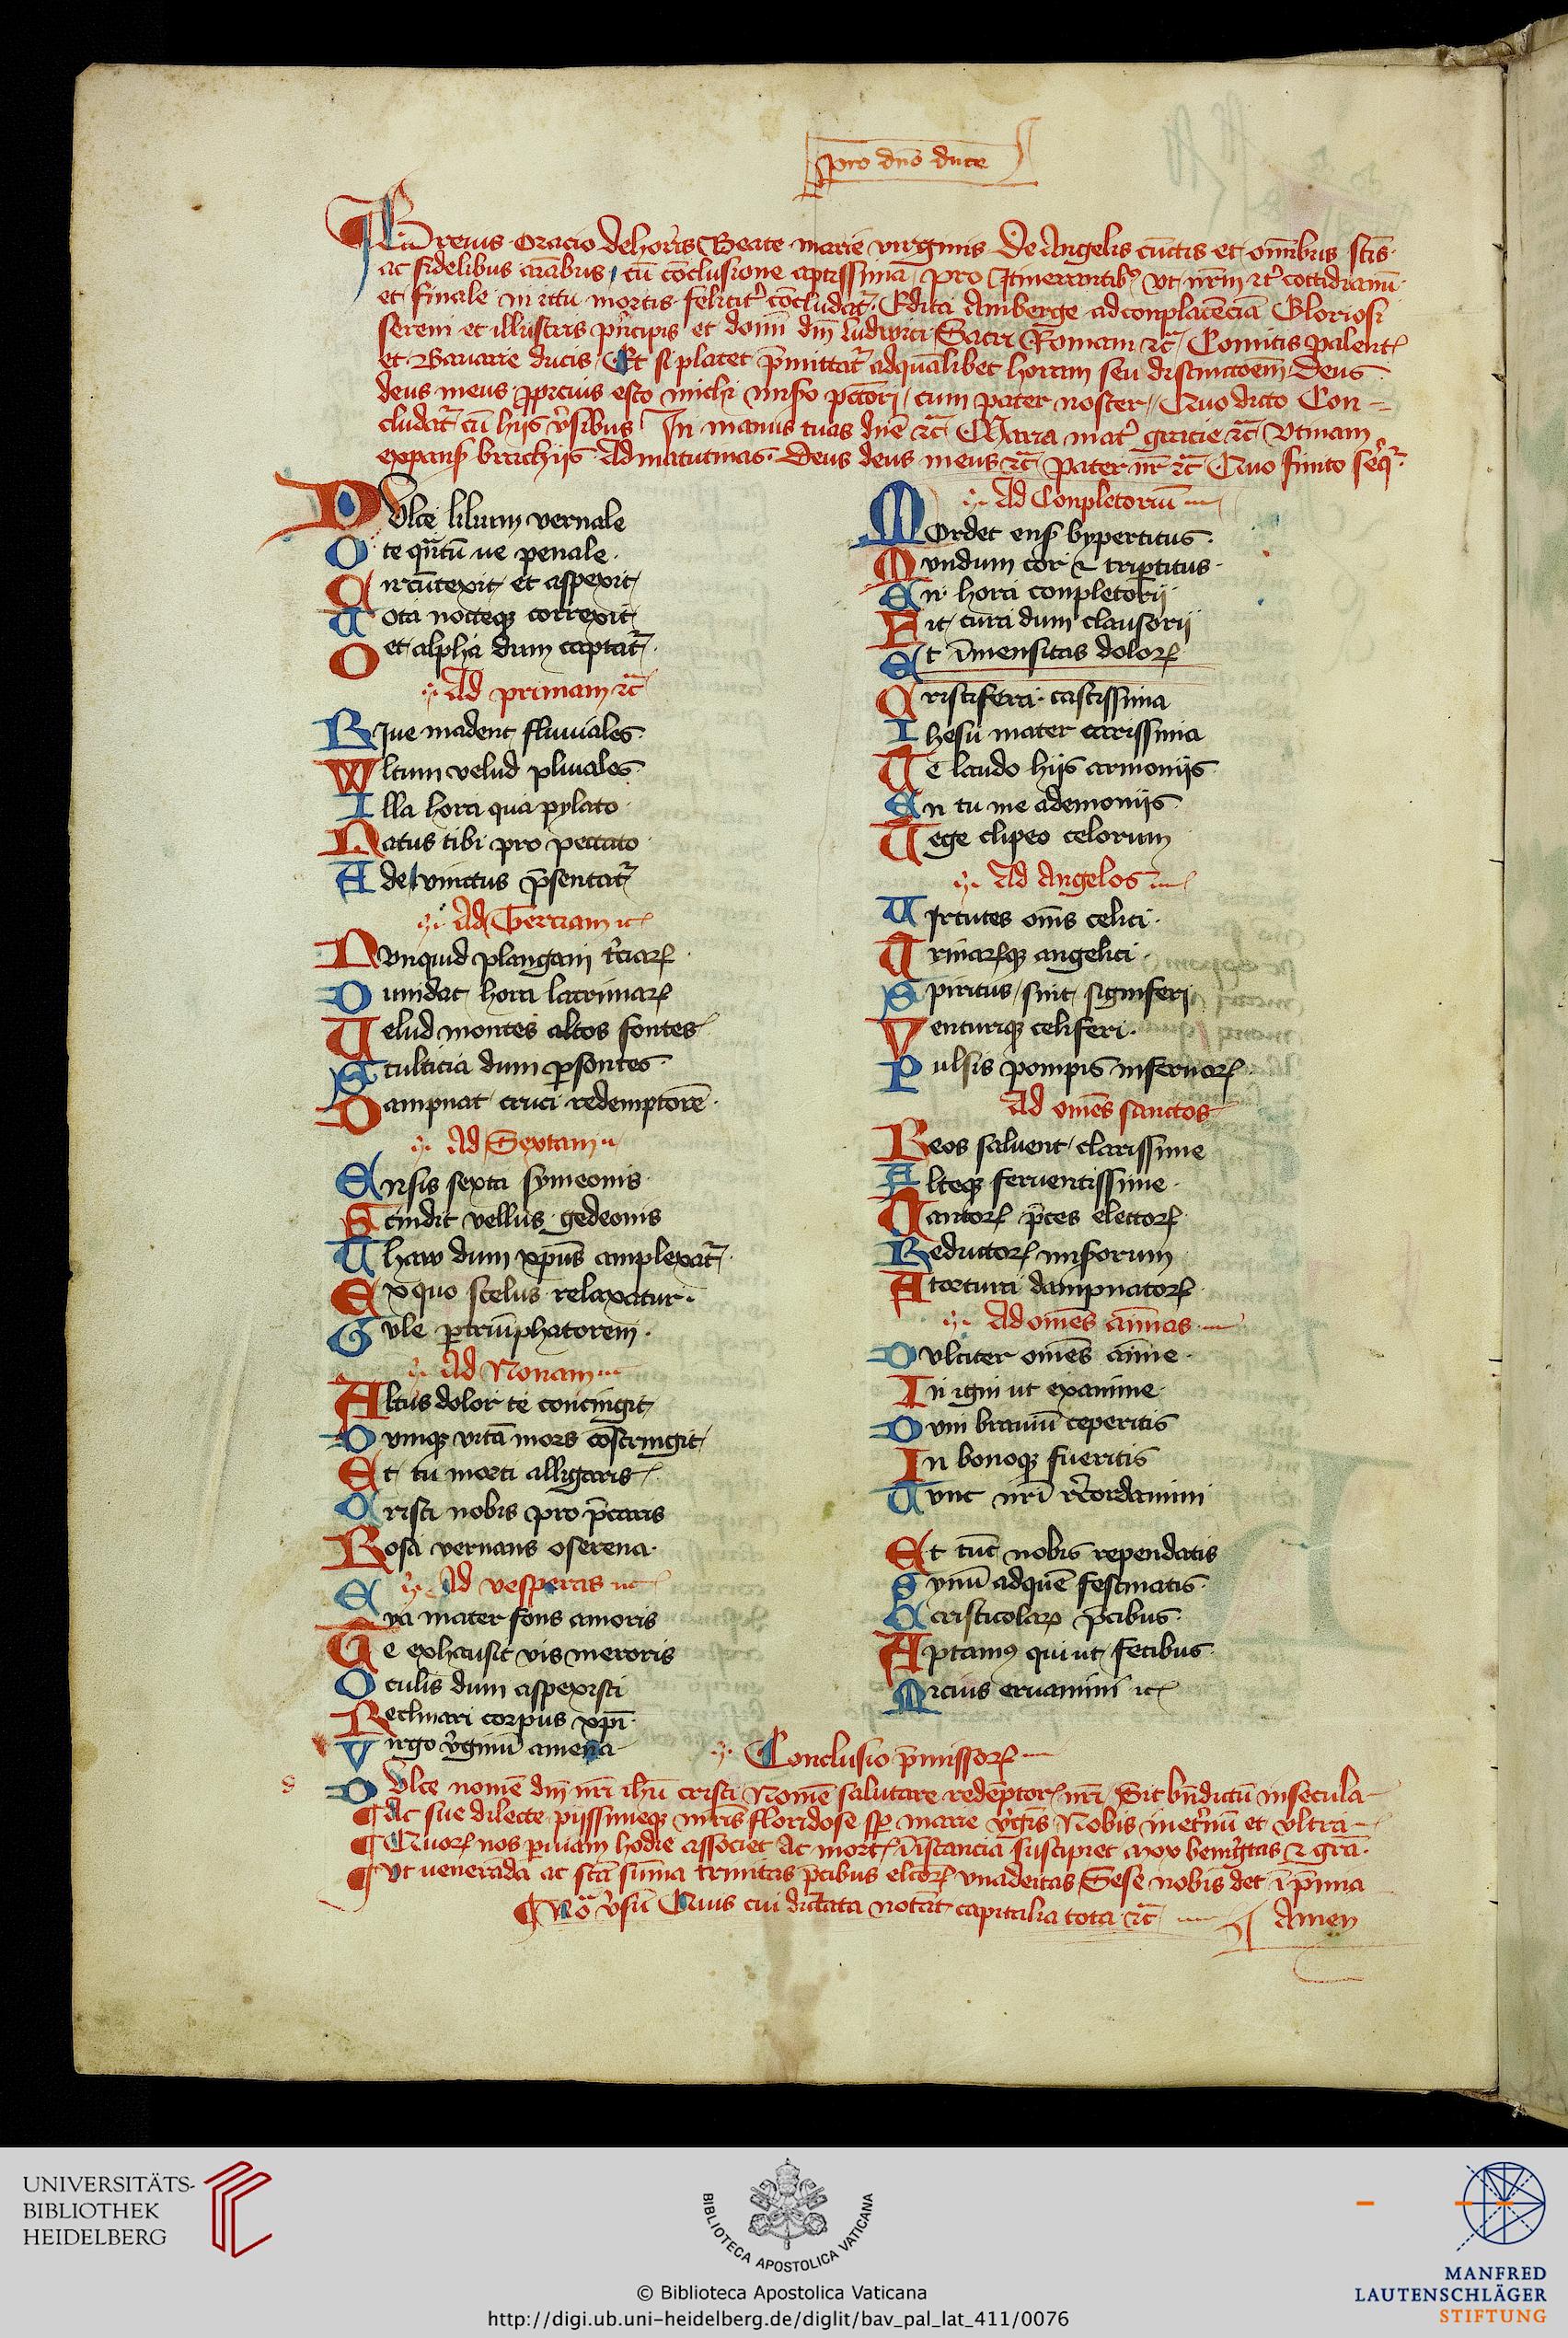 pro dnō duce
Breuis Oracio de horis Beate marie virginis De Angelis cūctis et omībus sctīs
ac fidelibus aīabus cū cōclusione aptissima pro Itinerantibꝫ vt nrm̄ cottidianū
et finale in ictu mortis felicitr̄ cōcludatr̄ Edita Amberge ad conplacēciā Gloriosi
sereni et illustris pn̄cipis et domī dnī ludwici Sacri Romani rc̄ Comitis palent
et Bauarie ducis Et si placet p̄mittatr̄ ad quālibet horam seu distinctōem Deus
deus meus ppicius esto michi misō pctōri cum pater noster Quo dicto Con-
cludatr̄ cū hijs v̄sibus In manus tuas dnē rc̄ Maria matr̄ gracie rc̄ Vtinam
expans brachijs Ad matutinas Deus deus meus rc̄ pater nr̄ rc̄ Quo finito seqr̄
Dulce lilium vernale
O te qn̄tū ue penale
Circūtexit et aspexit
Tota nocteqꝫ correxit
O et alpha dum captatr̄
Ad primam rc̄
Riue madent fluuiales
Wltum velud pluuiales
Illa hora qua pylato
Natus tibi pro peccato
Ade vinctus p̄sentatr̄
Ad Terciam rc
Nunquid plangam tc̄iarꝝ
Dum dat hora lacrimarꝝ
Velud montes altos fontes
Stulticia dum psontes
Dampnat cruci redemptorē
Ad Sextam
Ensis sexta symeonis
Scindit vellus gedeonis
Thaw dum xpūs amplexatr̄
Ex quo scelus relaxatur
Gule ptriūphatorem
Ad Nonam
Altus dolor te concingit
Dumqꝫ vitā mors cōstringit
Et tu morti alligaris
Cristi nobis pro p̄caris
Rosa vernans o serena
Ad vesperas rc
Eva mater fons amoris
Te exhausit vis meroris
Oculis dum aspexisti
Reclinari corpus xpī
Virgo v̄ginū amena
Ad Conpletoriū
Mordet ens bypertitus
Mundum cor ⁊ tripertitus
En hora conpletorij
Fit cura dum clausorij
Et īmensitas dolorꝝ
Cristifera castissima
Ihesu mater carissima
Te laudo hijs armonijs
En tu me a demonijs
Tege clipeo celorum
Ad Angelos
Virtutes om̄s celici
Trinarꝝqꝫ angelici
Spiritus sint signiferi
Venturiqꝫ celiferi
Pulsis pompis infernorꝝ
Ad om̄es sanctos
Reos saluent clarissime
Alteqꝫ feruentissime
Cantorꝝ p̄ces electorꝝ
Reductorꝝ misorum
A tortura dampnatorꝝ
Ad om̄es aīmas
Dulciter om̄es aīme
In igni ut examine
Dum brauiū ceperitis
In bonoqꝫ fueritis
Tunc nrī rc̄ordamini
Et tūc nobis rependatis
Sumū ad quē festinatis
Cristicolarꝝ p̄cibus
Aptamꝰ qui ut fecibus
Arcius eruamini rc
Conclusio p̄missorꝝ
Dulce nomē dnī nrī ihū cristi Nomē salutare redēptorꝭ nrī Sit bn̄dictū in secula
Ac sue dilecte pijssimeqꝫ mr̄is floridose sp marie v̄gīs Nobis in et̄nū et vltra
Quorꝝ nos p viam hodie associet Ac mortꝭ īstancia suscipiet benigtas ⁊ grā
Vt venerāda ac sctā sūma trinitas p̄cibus elctōrꝝ vna deitas Sese nobis det ī p̄mia
Nō v̄sū Quis cui dictata notāt capitalia tota rc̄ Amen
UNIVERSITÄTS-
BIBLIOTHEK
HEIDELBERG
BIBLIOTECA APOSTOLICA VATICANA
© Biblioteca Apostolica Vaticana
http://digi.ub.uni-heidelberg.de/diglit/bav_pal_lat_411/0076
MANFRED
LAUTENSCHLÄGER
STIFTUNG